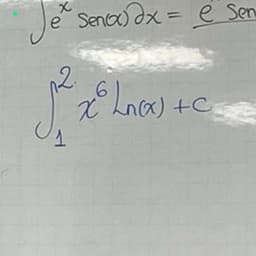 ∫e^x sen(x)dx = e sen
∫_1^2 x^6 Ln(x) + c